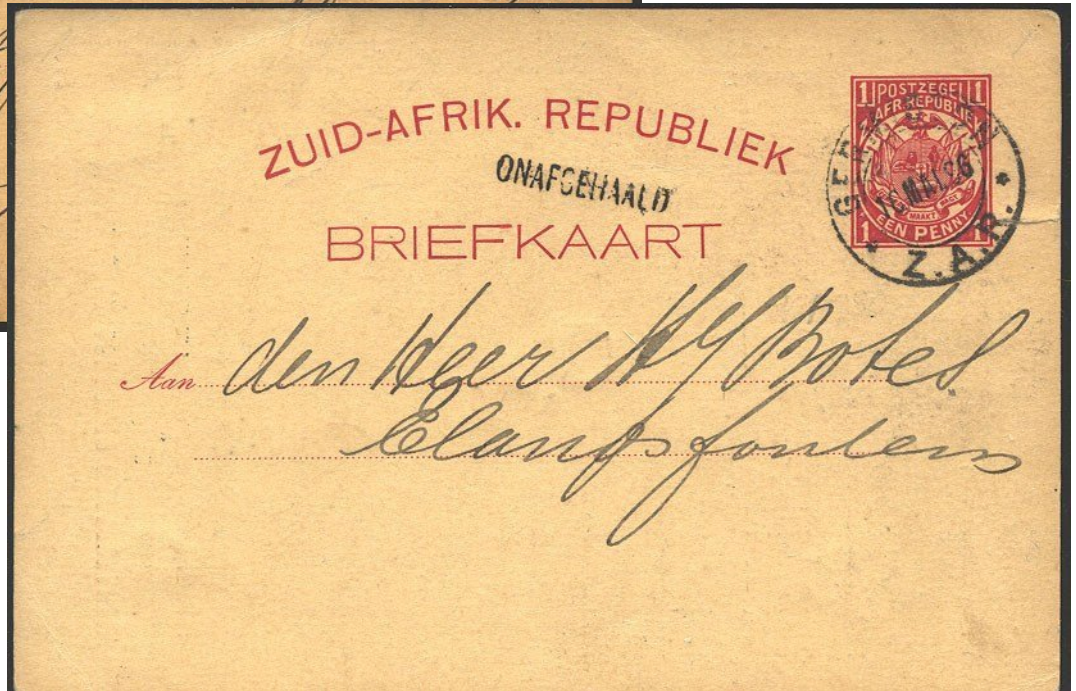 ZUID-AFRIK. REPUBLIEK
ONAFGEHAALD
BRIEFKAART
1 POSTZEGEL 1
Z. AFR. REPUBLIEK
EENDRAGT MAAKT MAGT
1 EEN PENNY 1
GERMISTON
16 MAI. 96
Z.A.R.
Aan den Heer HY Botes
Elandsfontein